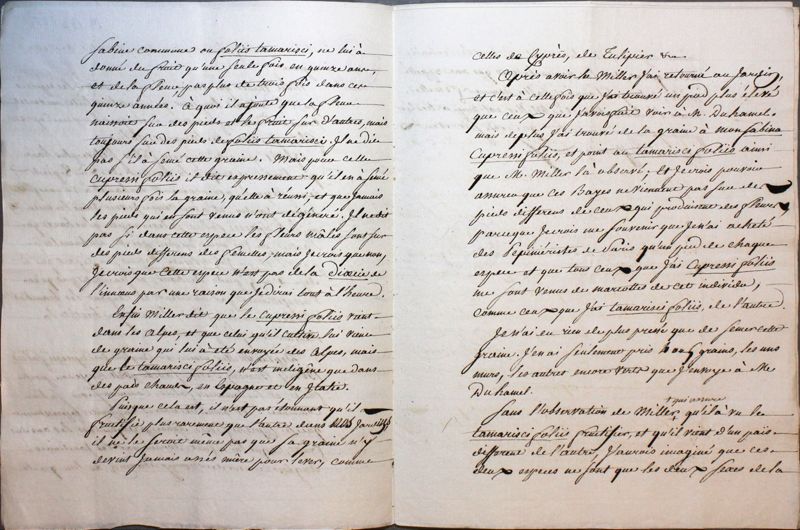 Sabine commune ou foliis tamarisci, ne lui à
donné du fruit qu'une seule fois en quinze ans,
et de la fleur pas plus de trois fois dans ces
quinze années. à quoi il ajoute que la fleur
naissoit sur des pieds et le fruit sur d'autres, mais
toujours sur des pieds de foliis tamarisci. Il ne dit
pas s'il à semé cette graine. Mais pour cette
cupressi foliis il dit expressement qu'il en à semé
plusieurs fois la graine, qu'elle à réussi, et que jamais
les pieds qui en sont venus n'ont dégéneré. Il ne dit
pas si dans cette espece les fleurs mâles sont sur
des pieds differens des femelles mais je crois que non,
Je crois que cette espece n'est pas de la dioecie de
Linnaeus par une raison que je dirai tout à l'heure.
Enfin Miller dit que le cupressi foliis vient
dans les Alpes, et que celui qu'il cultive lui vient
de graine qui lui à été envoyée des Alpes, mais
que le tamarisci foliis, n'est indigène que dans
des pais chauds, en Espagne et en Italie.
Puisque cela est, il n'est pas étonnant qu'il
fructifie plus rarement que l'autre dans nos Jardins
il ne le seroit même pas que sa graine n'y
devint jamais assés mûre pour lever, comme
celles de Cyprès, de Tulipier &c.
Après avoir lu Miller j'ai retourné au Jardin,
et c'est à cette fois que j'ai trouvé un pied plus élevé
que ceux que j'avois fait voir à M. Duhamel.
mais de plus j'ai trouvé de la graine à mon sabina
cupressi foliis, et point au tamarisci foliis ainsi
que M. Miller l'à observé. Et je crois pouvoir
assurer que ces Bayes ne viennent pas sur des
pieds differens de ceux qui produisent des fleurs
parceque je crois me souvenir que je n'ai acheté
des Pepinieristes de Paris qu'un pied de chaque
espece et que tous ceux que j'ai cupressi foliis
me sont venus de marcottes de cet individu,
comme ceux que j'ai tamarisci foliis, de l'autre.
Je n'ai eu rien de plus pressé que de semer cette
graine. J'en ai seulement pris 4 ou 5 grains, les uns
murs, les autres encore verts que j'envoye à M.
Duhamel.
Sans l'observation de Miller, + qui assure qu'il à vu le
tamarisci foliis fructifier, et qu'il vient d'un pais
different de l'autre, j'aurois imaginé que ces
deux especes ne sont que les deux sexes de la